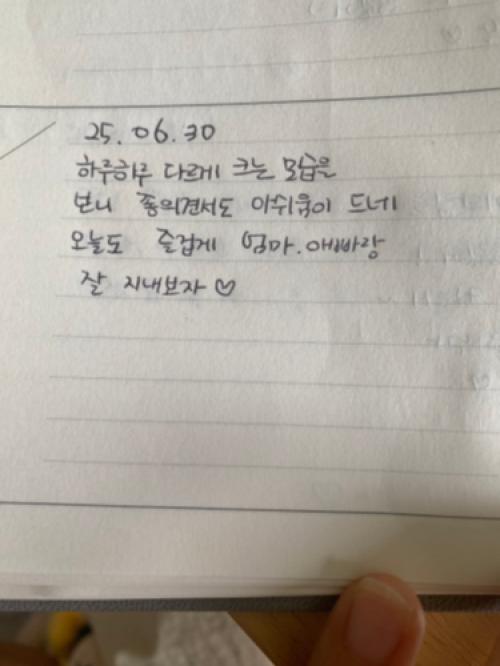 25.06.30
하루하루 다르게 크는 모습을
보니 좋으면서도 아쉬움이 드네
오늘도 즐겁게 엄마.아빠랑
잘 지내보자 ♡